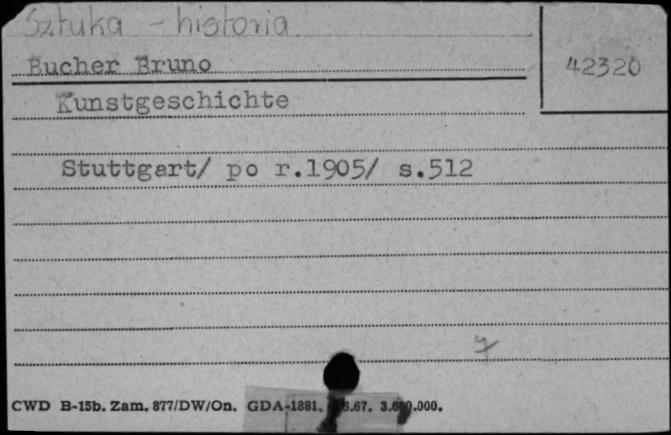 Sztuka - historia
Bucher Bruno
42320
Kunstgeschichte
Stuttgart/ po r.1905/ s.512
CWD B-15b. Zam. 877/DW/On. GDA-1881.